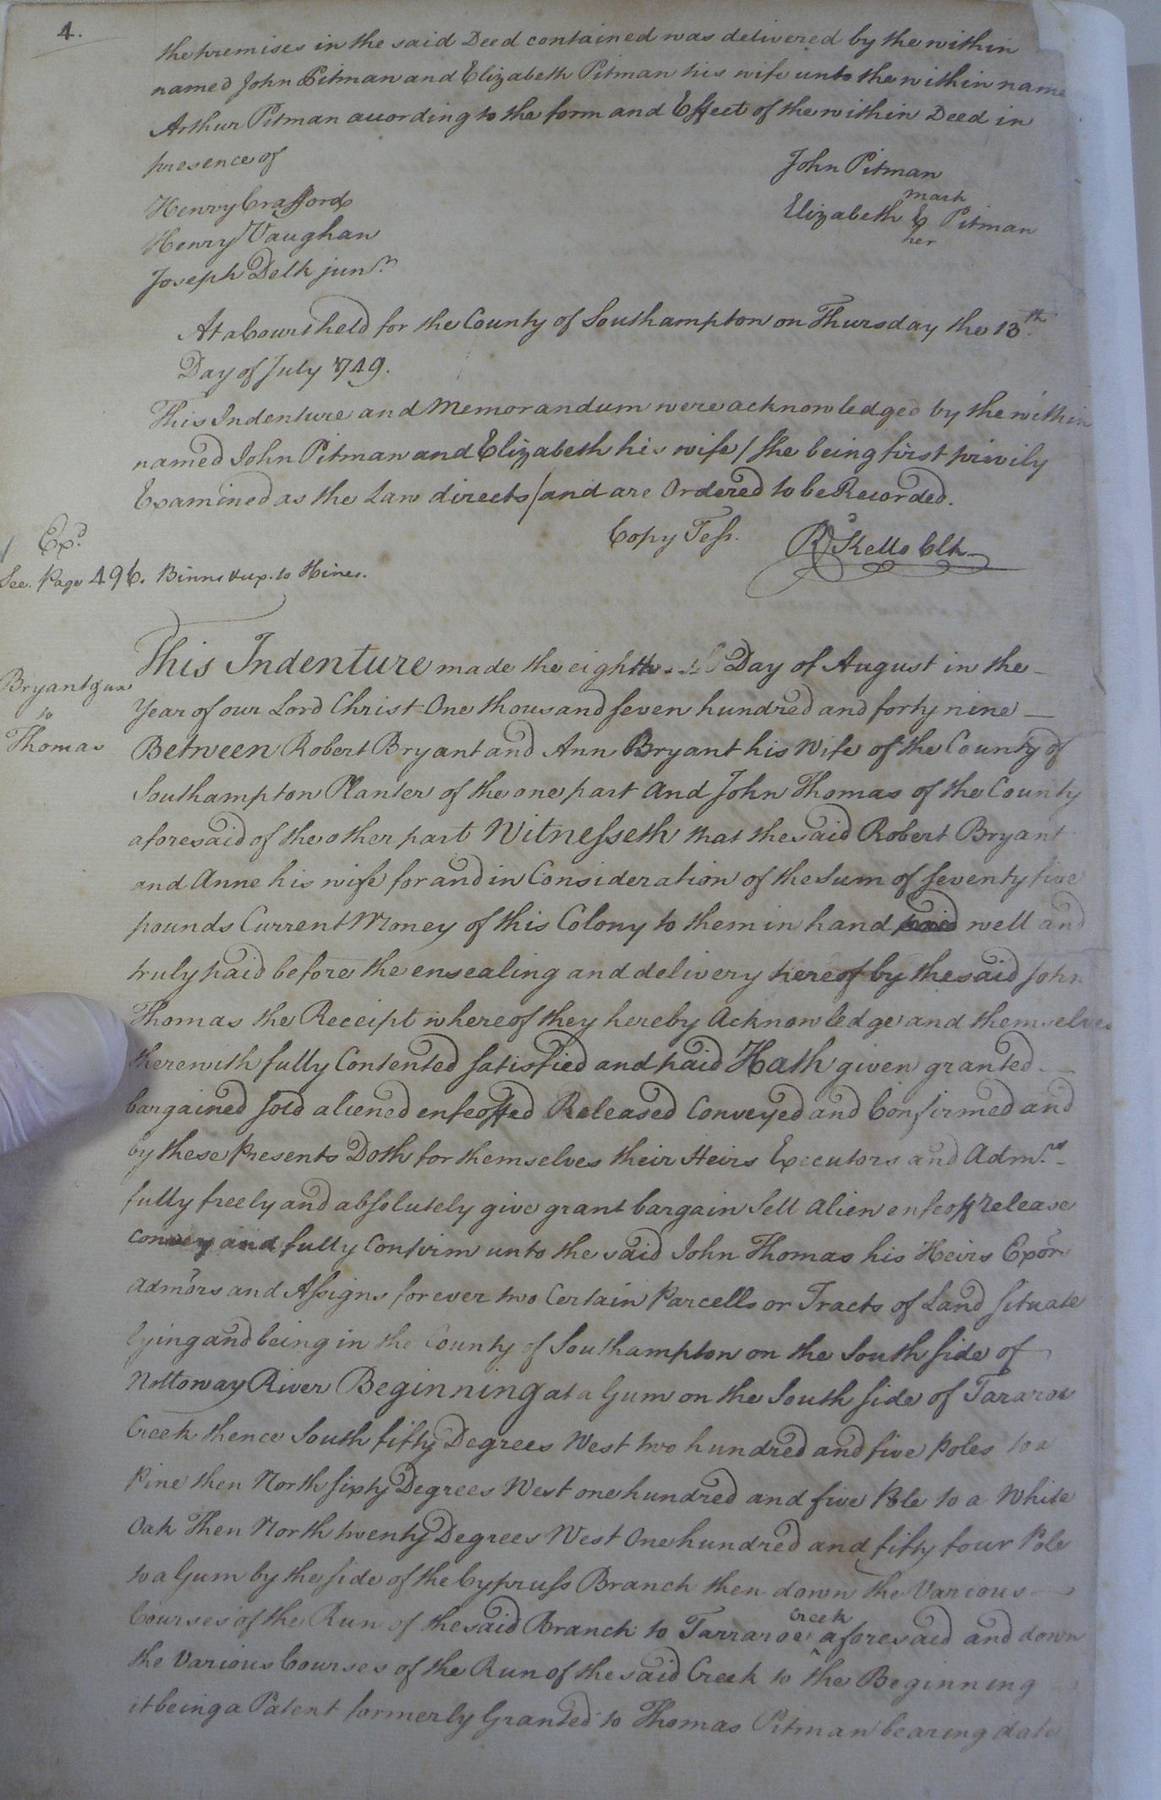 4.
the premises in the said Deed contained was delivered by the within
named John Pitman and Elizabeth Pitman his wife unto the within name
Arthur Pitman according to the form and Effect of the within Deed in
presence of
John Pitman
Henry Crafford
mark
Elizabeth E Pitman
her
Henry Vaughan
Joseph Delk junr.
At a Court held for the County of Southampton on Thursday the 13th.
Day of July 1749.
This Indenture and Memorandum were acknowledged by the within
named John Pitman and Elizabeth his wife / She being first privily
Examined as the Law directs / and are Ordered to be Recorded.
Copy Tess. Rd Kello Clk
Exd.
See Page 496. Binns & ux. to Hines.
This Indenture made the eighth Day of August in the
Bryant & ux
to
Thomas
Year of our Lord Christ One thousand seven hundred and forty nine
Between Robert Bryant and Ann Bryant his Wife of the County of
Southampton Planter of the one part And John Thomas of the County
aforesaid of the other part Witnesseth that the said Robert Bryant
and Anne his wife for and in Consideration of the Sum of seventy five
pounds Current Money of this Colony to them in hand paid well and
truly paid before the ensealing and delivery hereof by the said John
Thomas the Receipt whereof they hereby Acknowledge and themselves
therewith fully Contented satisfied and paid Hath given granted
bargained sold aliened enfeoffed Released Conveyed and Confirmed and
by these Presents Doth for themselves their Heirs Executors and Admrs.
fully freely and absolutely give grant bargain Sell Alien enfeoff release
convey and fully Confirm unto the said John Thomas his Heirs Exors
Admors and Assigns forever two Certain Parcells or Tracts of Land Situate
lying and being in the County of Southampton on the South side of
Nottoway River Beginning at a Gum on the South side of Tararoe
Creek thence South fifty Degrees West two hundred and five Poles to a
Pine then North sixty Degrees West one hundred and five Pole to a White
Oak Then North twenty Degrees West One hundred and fifty four Pole
to a Gum by the side of the Cypruss Branch then down the Various
Creek
Courses of the Run of the said Branch to Tarraroe ^ aforesaid and down
the Various Courses of the Run of the said Creek to the Beginning
it being a Patent formerly Granted to Thomas Pitman bearing date